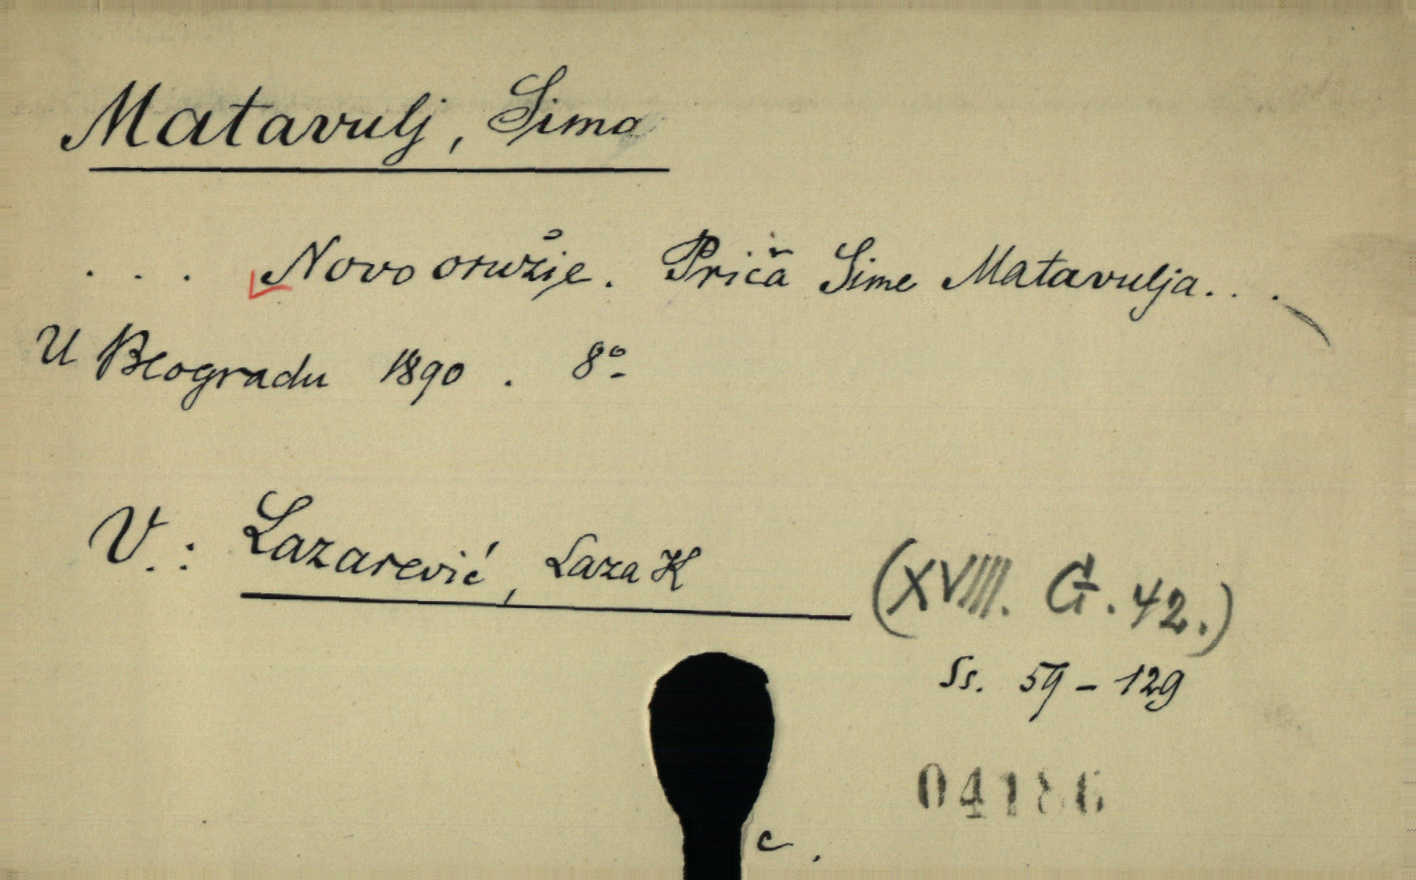 Matavulj, Simo
. . . Novo oružje. Priča Sime Matavulja. . .
U Beogradu 1890. 8º
V.: Lazarević, Laza K
(XVIIII. G. 42.)
Ss. 59 - 129
04186
c.